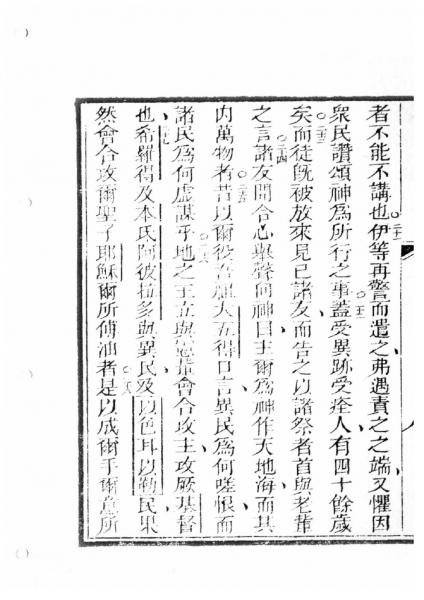 者不能不講也○二一伊等再警而遣之弗遇責之之端又懼因
衆民讚頌神爲所行之事○二二蓋受異跡受痊人有四十餘歲
矣○二三而徒既被放來見己諸友而告之以諸祭者首與老輩
之言○二四諸友聞合心舉聲向神曰主爾爲神作天地海而其
内萬物者○二五昔以爾大五得口言異民爲何嗟恨而
諸民爲何虛謀乎○二六地之王立與憲輩會合攻主攻厥基督
也○二七希羅得及本氏阿彼拉多與異民及以色耳以勒民果
然會合攻爾聖子耶穌爾所傅油者○二八是以成爾手爾意所